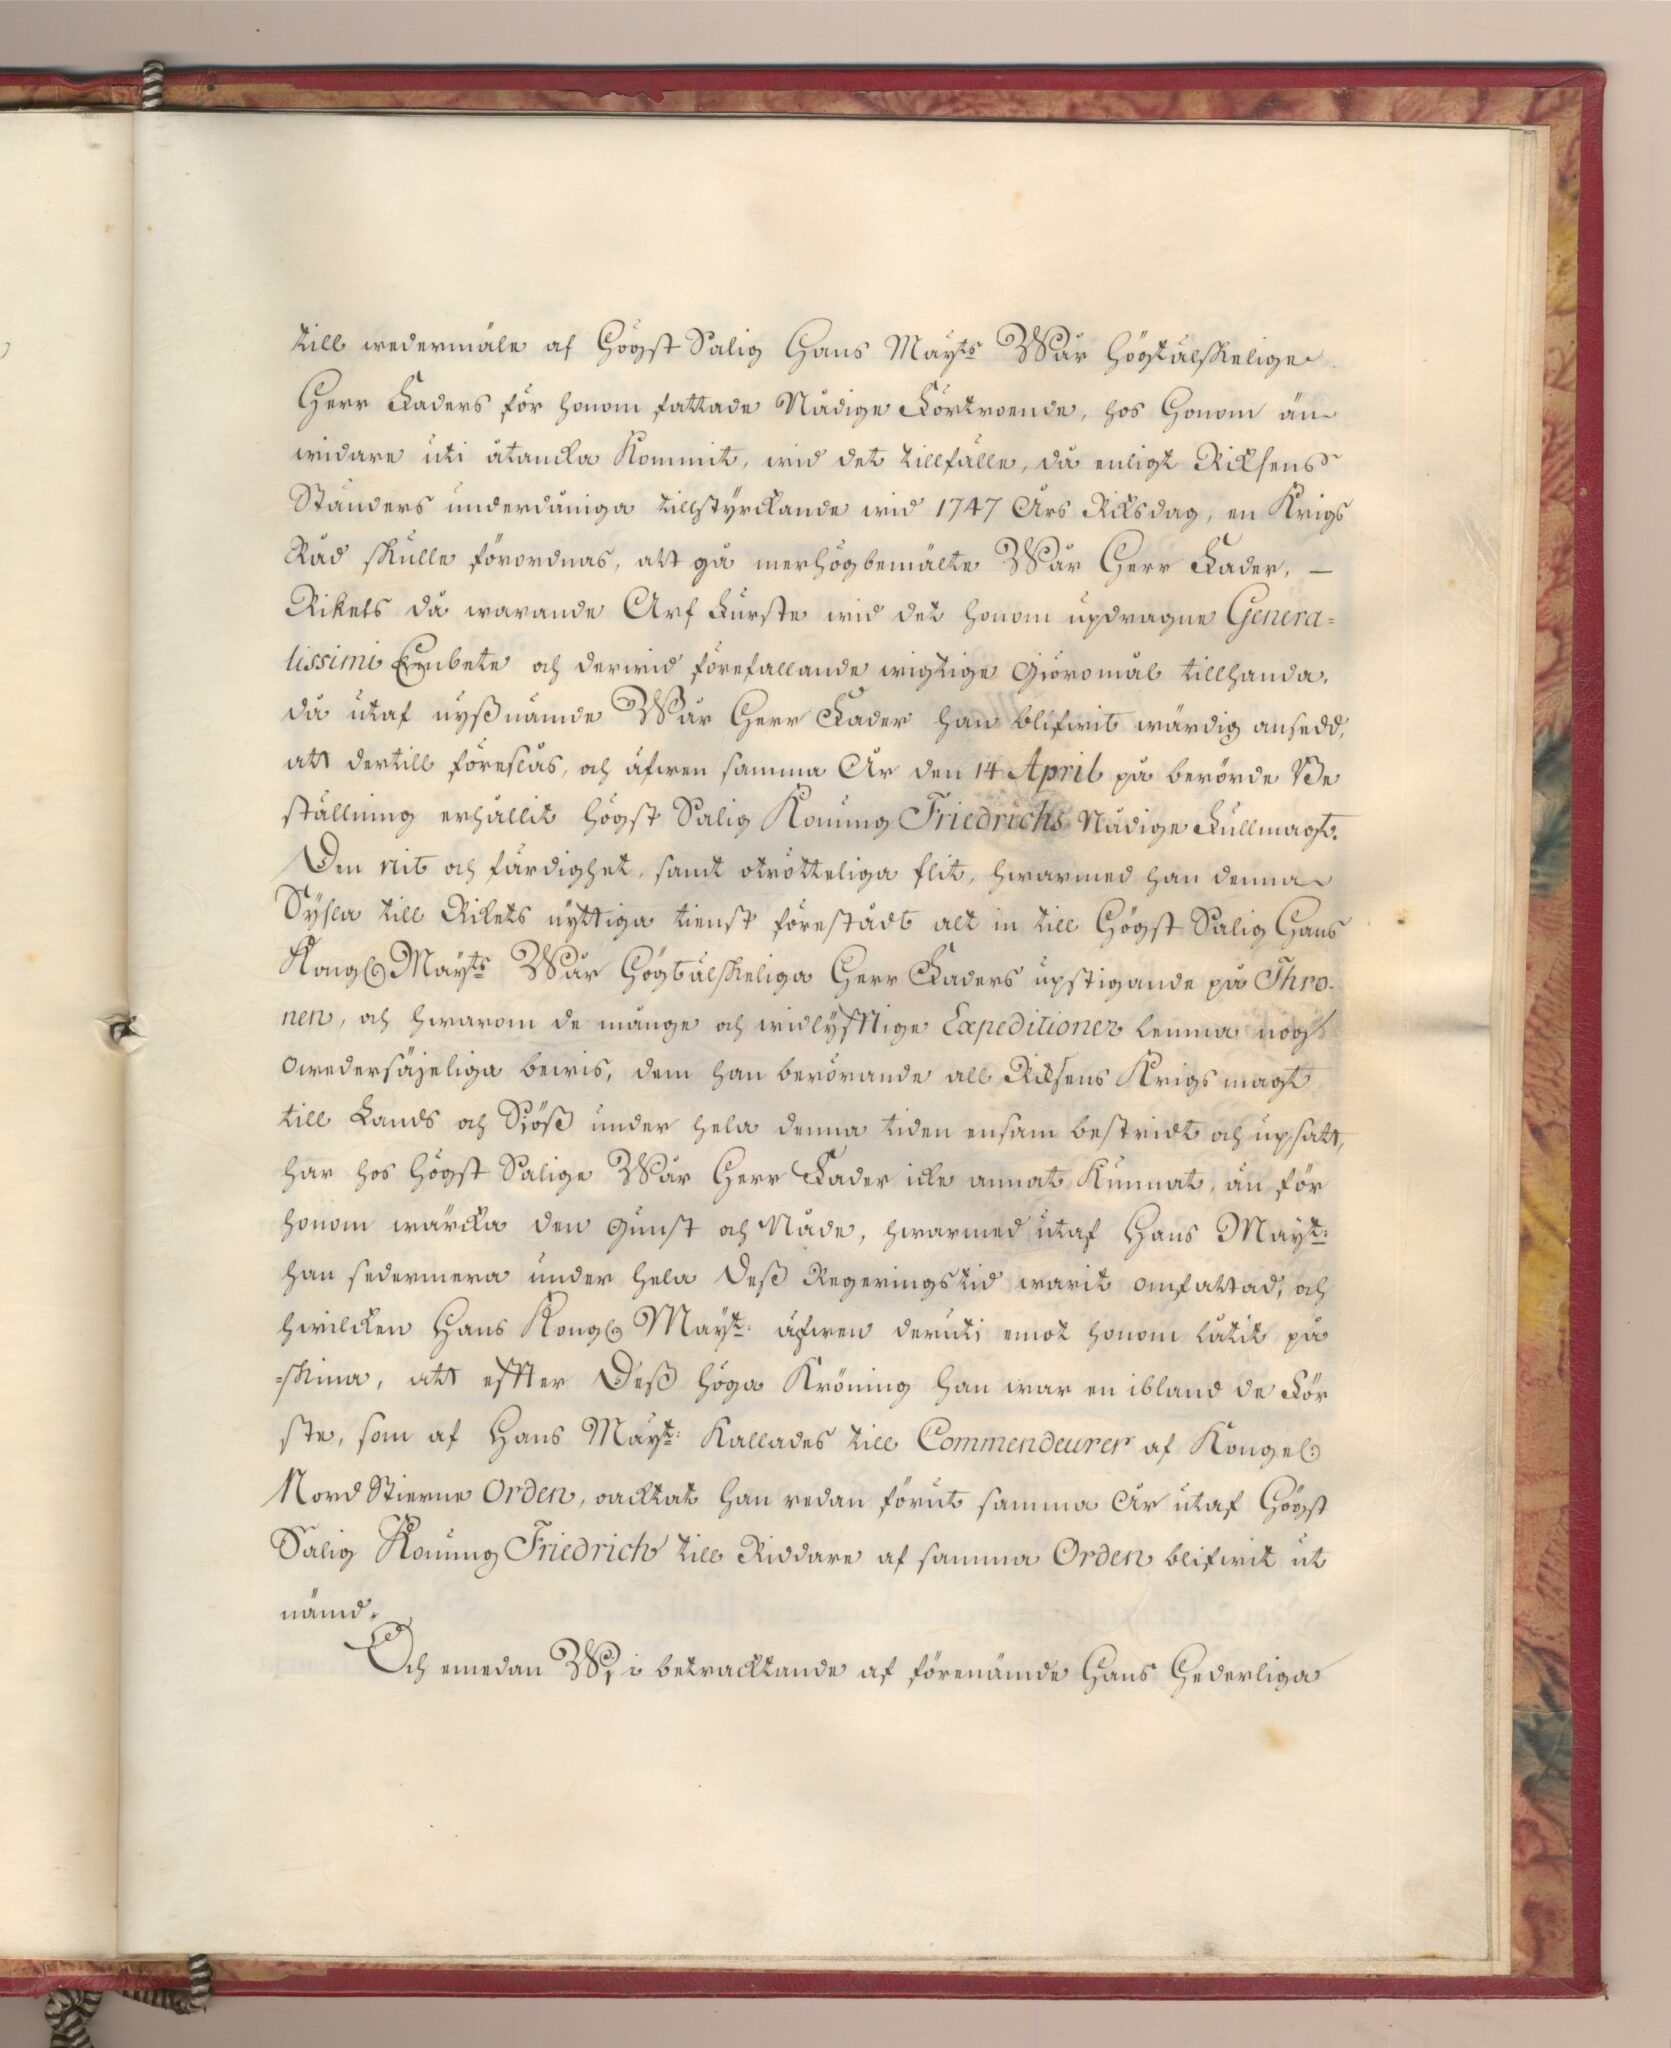 till wedermäle af Högst Salig Hans Mayts Wår Högtälskelige
Herr Faders för honom fattade Nådige Förtroende, hos Honom än-
widare uti åtancka kommit, wid det tillfälle, då enligt Riksens
Ständers underdåniga tillstyrckande wid 1747 Års Riksdag, en Krigs
Råd skulle förordnas, att gå merhögbemälte Wår Herr Fader, —
Rikets då warande Arf Furste wid det honom updragne Genera=
lissimi Embete och derwid förefallande wigtige Giöromål tillhanda,
då utaf nyßnämde Wår Herr Fader han blifwit wärdig ansedd,
att dertill föreslås, och äfwen samma År den 14 April på berörde Be
ställning erhållit Högst Salig Konung Friedrichs Nådige Fullmagt.
Den nit och färdighet, samt otrötteliga flit, hwarmed han denna
Sysla till Rikets nyttiga tienst förestådt alt in till Högst Salig Hans
Kongl. Mayts Wår Högtälskeliga Herr Faders upstigande på Thro-
nen, och hwarom de månge och widlyfftige Expeditioner lemna nog
owedersäjeliga bewis, dem han berörande all Riksens Krigsmagt
till Lands och Siöß under hela denna tiden ensam bestridt och upsatt,
har hos Högst Salige Wår Herr Fader icke annat kunnat, än för
honom wärcka den Gunst och Nåde, hwarmed utaf Hans Mayt:
han sedermera under hela Deß Regeringstid warit omfattad, och
hwilcken Hans Kongl. Mayt: äfwen deruti emot honom låtit på
=skina, att effter Deß höga Kröning han war en ibland de För
ste, som af Hans Mayt: kallades till Commendeurer af Kongel:
Nord Stierne Orden, oacktat han redan förut samma År utaf Högst
Salig Konung Friedrich till Riddare af samma Orden blifwit ut
nämd.
Och emedan Wi, i betracktande af förenämde Hans Hederliga